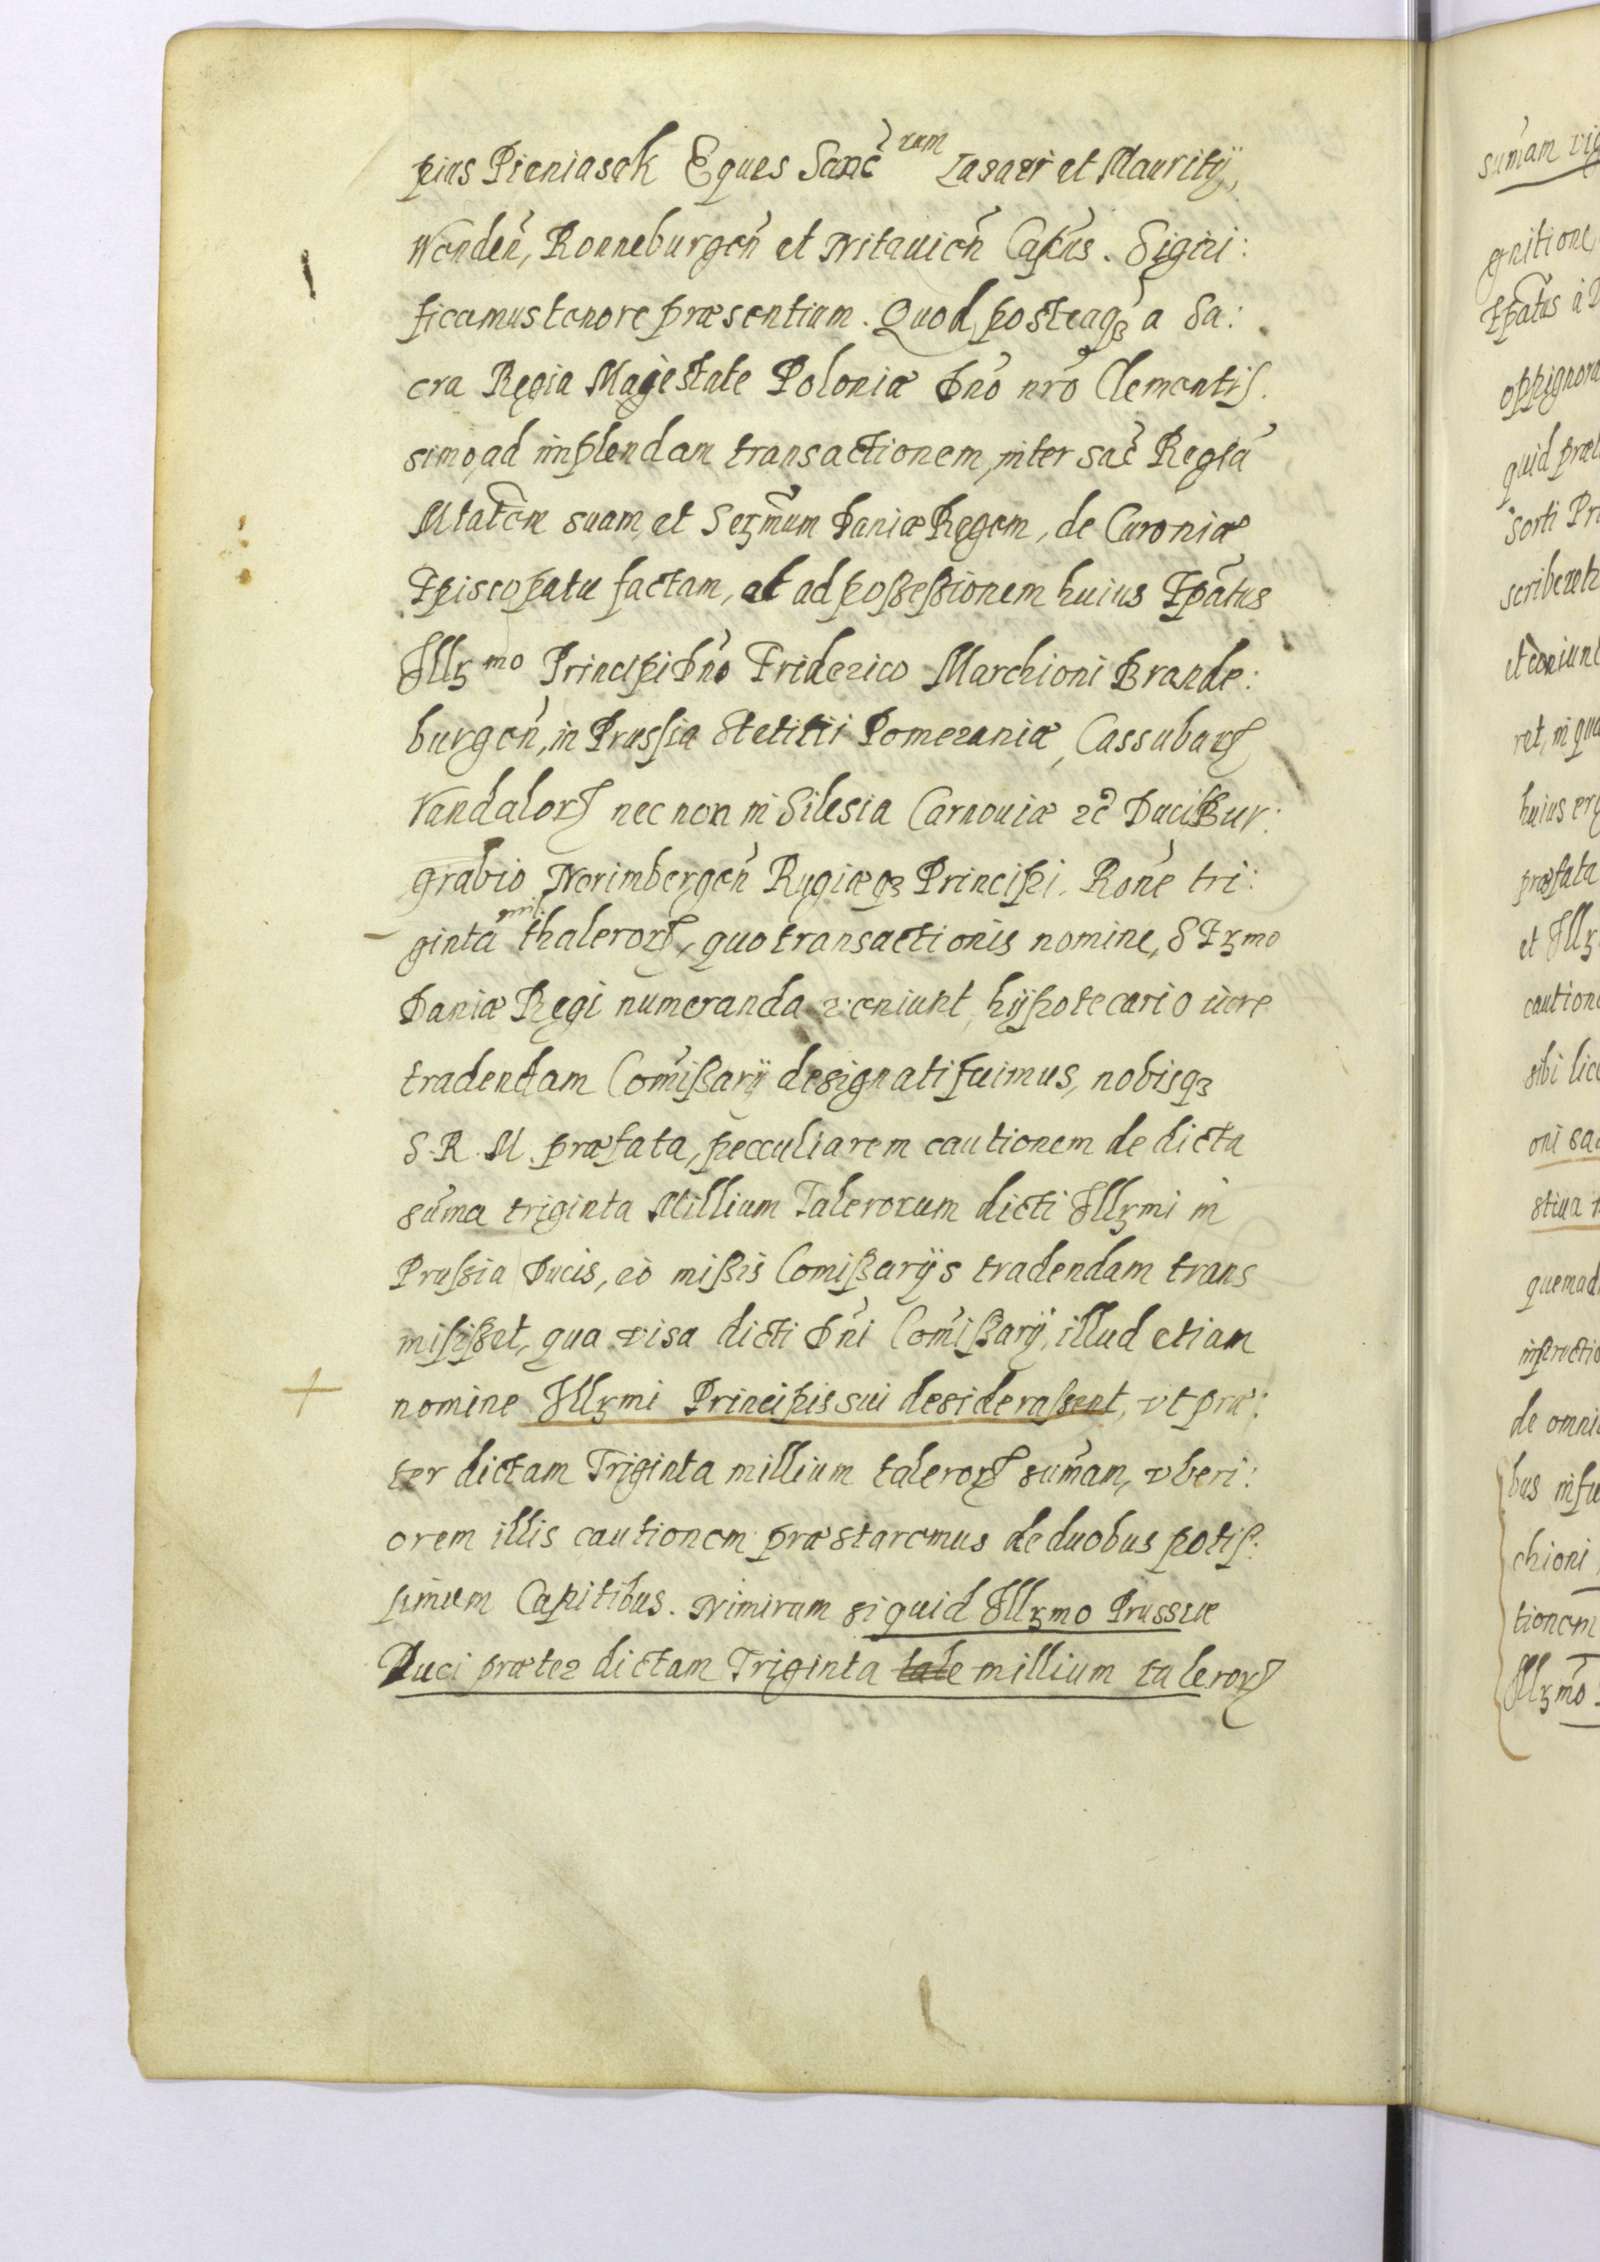 pius Pieniasek Eques Sanc̃rum Lasari et Mauritÿ,
Wenden̄, Ronneburgen̄ et Nitauien̄ Capn̄s. Signi:
ficamus tenore præsentium. Quod, posteaqꝫ a Sa:
cra Regia Magiestate Poloniæ Dn̄o nr̄o Clementiſ.
simo, ad implendam transactionem, inter sac̄ Regiā
Mtatem suam, et Serꝫmum Daniæ Regem, de Curoniæ
Episcopatu factam, et ad poßeßionem huius Epātus
Illꝫmo Principi Dn̄o Friderico Marchioni Brande:
burgen̄, in Prussia Stetini Pomeraniæ, Cassubarꝝ
Vandalorꝝ nec non in Silesia Carnouiæ ꝛc̄ Duci Bur:
grabio Norimbergen̄ Rugiæqꝫ Principi. Ron̄e tri:
ginta mil. thalerorꝝ, quo transactionis nomine, SErꝫmo
Daniæ Regi numeranda veniunt, hÿpotecario iure
tradendam Com̄ißarÿ designati fuimus, nobisqꝫ
S. R. M. præfata, pecculiarem cautionem de dicta
sum̄a triginta Millium Talerorum dicti Illꝫmi in
Prussia Ducis, eò mißis Comißarÿs tradendam trans
misißet, qua visa dicti Dn̄i Com̄ißarÿ, illud etiam
nomine Illꝫmi Principis sui desideraßent, vt præ:
ter dictam Triginta millium talerorꝝ sum̄am, vberi:
orem illis cautionem præstaremus de duobus potiß:
simum Capitibus. Nimirum si quid Illꝫmo Prussiæ
Duci præter dictam Triginta tale millium talerorꝝ
sum̄am
gnitione,
Epātus à
oppignora
quid præ
sorti Pr
scriberet
et coniunc
ret, in qua
huius
præfata
et Illꝫ
cautione
sibi lice
oni sac
stiua
quemad
de omni
bus
chioni
tionem
Illꝫmō